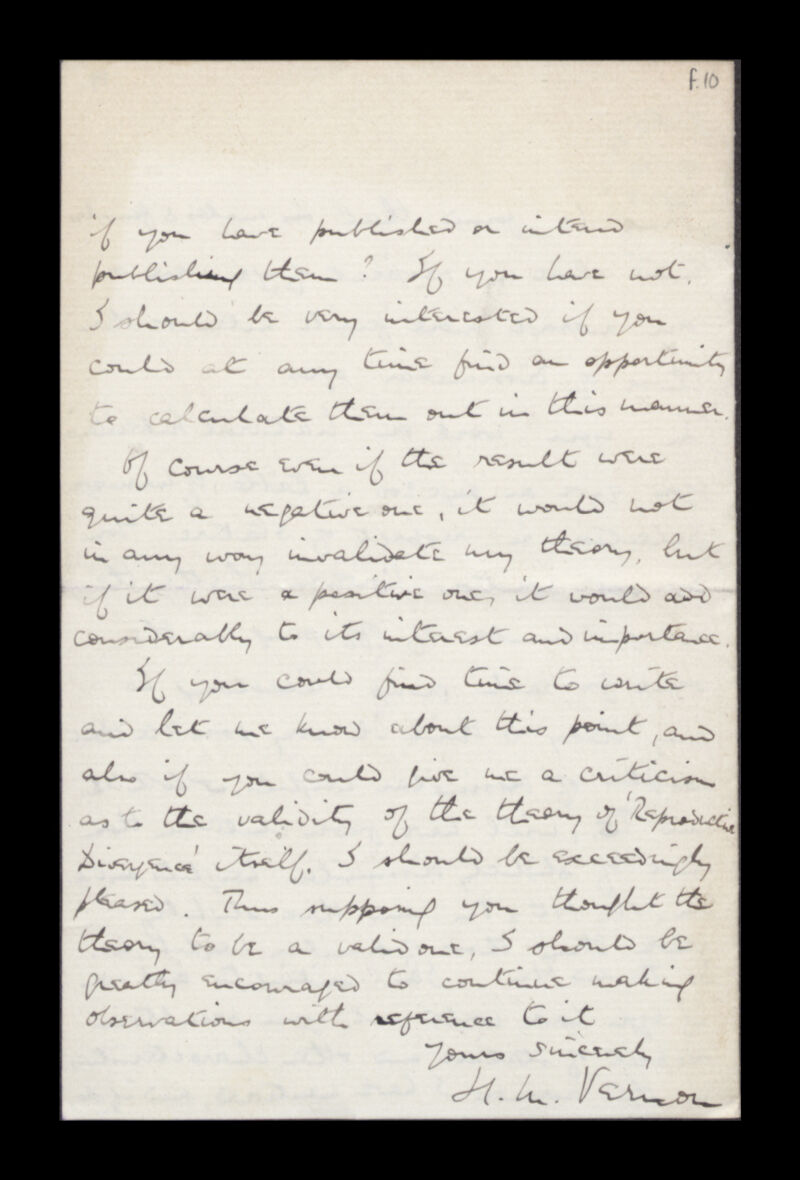 f.10
if you have published or intend
publishing them? If you have not,
I should be very interested if you
could at any time find an opportunity
to calculate them out in this manner.
Of course even if the result were
quite a negative one, it would not
in any way invalidate my theory, but
if it were a positive one, it would add
considerably to its interest and importance.
If you could find time to write
and let me know about this point, and
also if you could give me a criticism
as to the validity of the theory of 'Reproductive
Divergence' itself. I should be exceedingly
pleased. Thus supposing you thought the
theory to be a valid one, I should be
greatly encouraged to continue making
observations with reference to it
Yours sincerely
H. M. Vernon